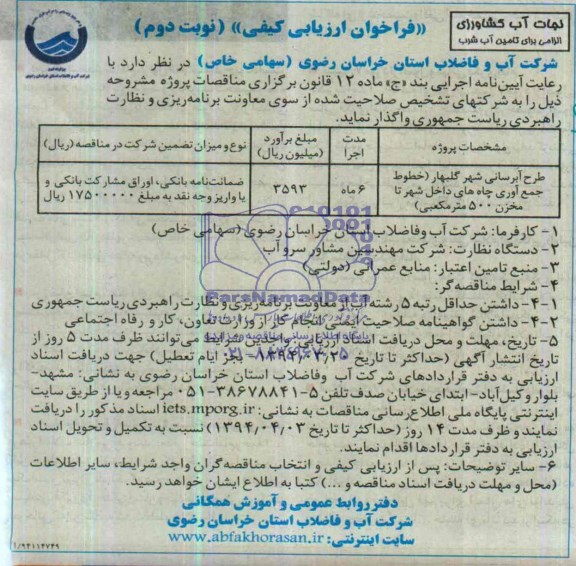 نجات آب کشاورزی
الزامی برای تامین آب شرب
«فراخوان ارزیابی کیفی» (نوبت دوم)
شرکت آب و فاضلاب استان خراسان رضوی (سهامی خاص) در نظر دارد با
رعایت آیین‌نامه اجرایی بند «ج» ماده ۱۲ قانون برگزاری مناقصات پروژه مشروحه
ذیل را به شرکتهای تشخیص صلاحیت شده از سوی معاونت برنامه‌ریزی و نظارت
راهبردی ریاست جمهوری واگذار نماید.
مشخصات پروژه
مدت اجرا
مبلغ برآورد (میلیون ریال)
نوع و میزان تضمین شرکت در مناقصه (ریال)
طرح آبرسانی شهر گلبهار (خطوط
جمع آوری چاه های داخل شهر تا
مخزن ۵۰۰ مترمکعبی)
۶ ماه
۳۵۹۳
ضمانت‌نامه بانکی، اوراق مشارکت بانکی و
یا واریز وجه نقد به مبلغ ۱۷۵۰۰۰۰۰۰ ریال
۱- کارفرما: شرکت آب وفاضلاب استان خراسان رضوی (سهامی خاص)
۲- دستگاه نظارت: شرکت مهندسین مشاور سرو آب
۳- منبع تامین اعتبار: منابع عمرانی (دولتی)
۴- شرایط مناقصه‌گر:
۴-۱- داشتن حداقل رتبه ۵ رشته آب از معاونت برنامه‌ریزی و نظارت راهبردی ریاست جمهوری
۴-۲- داشتن گواهینامه صلاحیت ایمنی انجام کار از وزارت تعاون، کار و رفاه اجتماعی
۵- تاریخ، مهلت و محل دریافت اسناد ارزیابی: واجدین شرایط می‌توانند ظرف مدت ۵ روز از
تاریخ انتشار آگهی (حداکثر تا تاریخ بجز ایام تعطیل) جهت دریافت اسناد
ارزیابی به دفتر قراردادهای شرکت آب وفاضلاب استان خراسان رضوی به نشانی: مشهد-
بلوار وکیل‌آباد- ابتدای خیابان صدف تلفن ۵-۳۸۶۷۸۸۴۱-۰۵۱ مراجعه و یا از طریق سایت
اینترنتی پایگاه ملی اطلاع‌رسانی مناقصات به نشانی: iets.mporg.ir اسناد مذکور را دریافت
نمایند و ظرف مدت ۱۴ روز (حداکثر تا تاریخ ۱۳۹۴،۰۴،۰۳) نسبت به تکمیل و تحویل اسناد
ارزیابی به دفتر قراردادها اقدام نمایند.
۶- سایر توضیحات: پس از ارزیابی کیفی و انتخاب مناقصه‌گران واجد شرایط، سایر اطلاعات
(محل و مهلت دریافت اسناد مناقصه و ...) کتبا به اطلاع ایشان خواهد رسید.
دفتر روابط عمومی و آموزش همگانی
شرکت آب و فاضلاب استان خراسان رضوی
سایت اینترنتی: www.abfakhorasan.ir
۹۴۱۱۴۷۴۹/ا